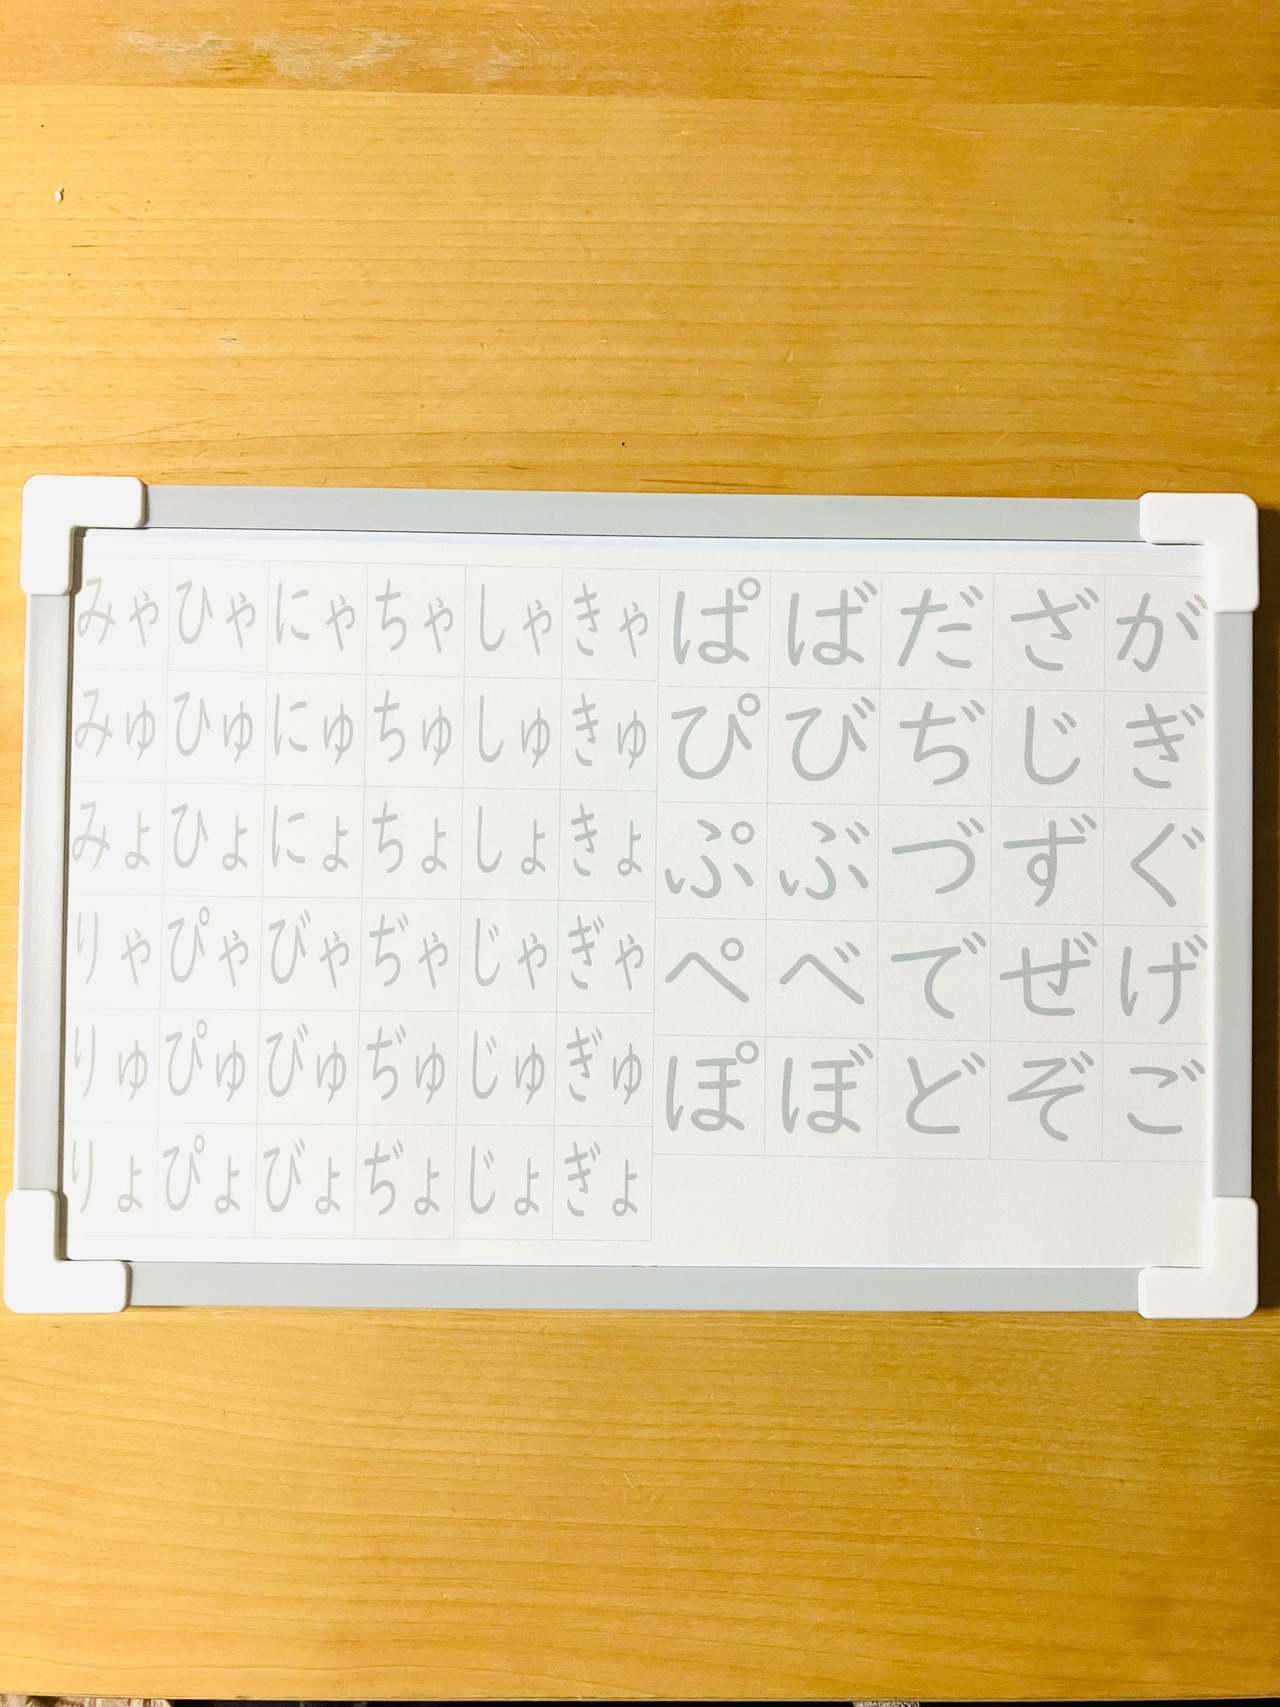 がぎぐげご
ざじずぜぞ
だぢづでど
ばびぶべぼ
ぱぴぷぺぽ
きゃ きゅ きょ ぎゃ ぎゅ ぎょ
しゃ しゅ しょ じゃ じゅ じょ
ちゃ ちゅ ちょ ぢゃ ぢゅ ぢょ
にゃ にゅ にょ びゃ びゅ びょ
ひゃ ひゅ ひょ ぴゃ ぴゅ ぴょ
みゃ みゅ みょ りゃ りゅ りょ